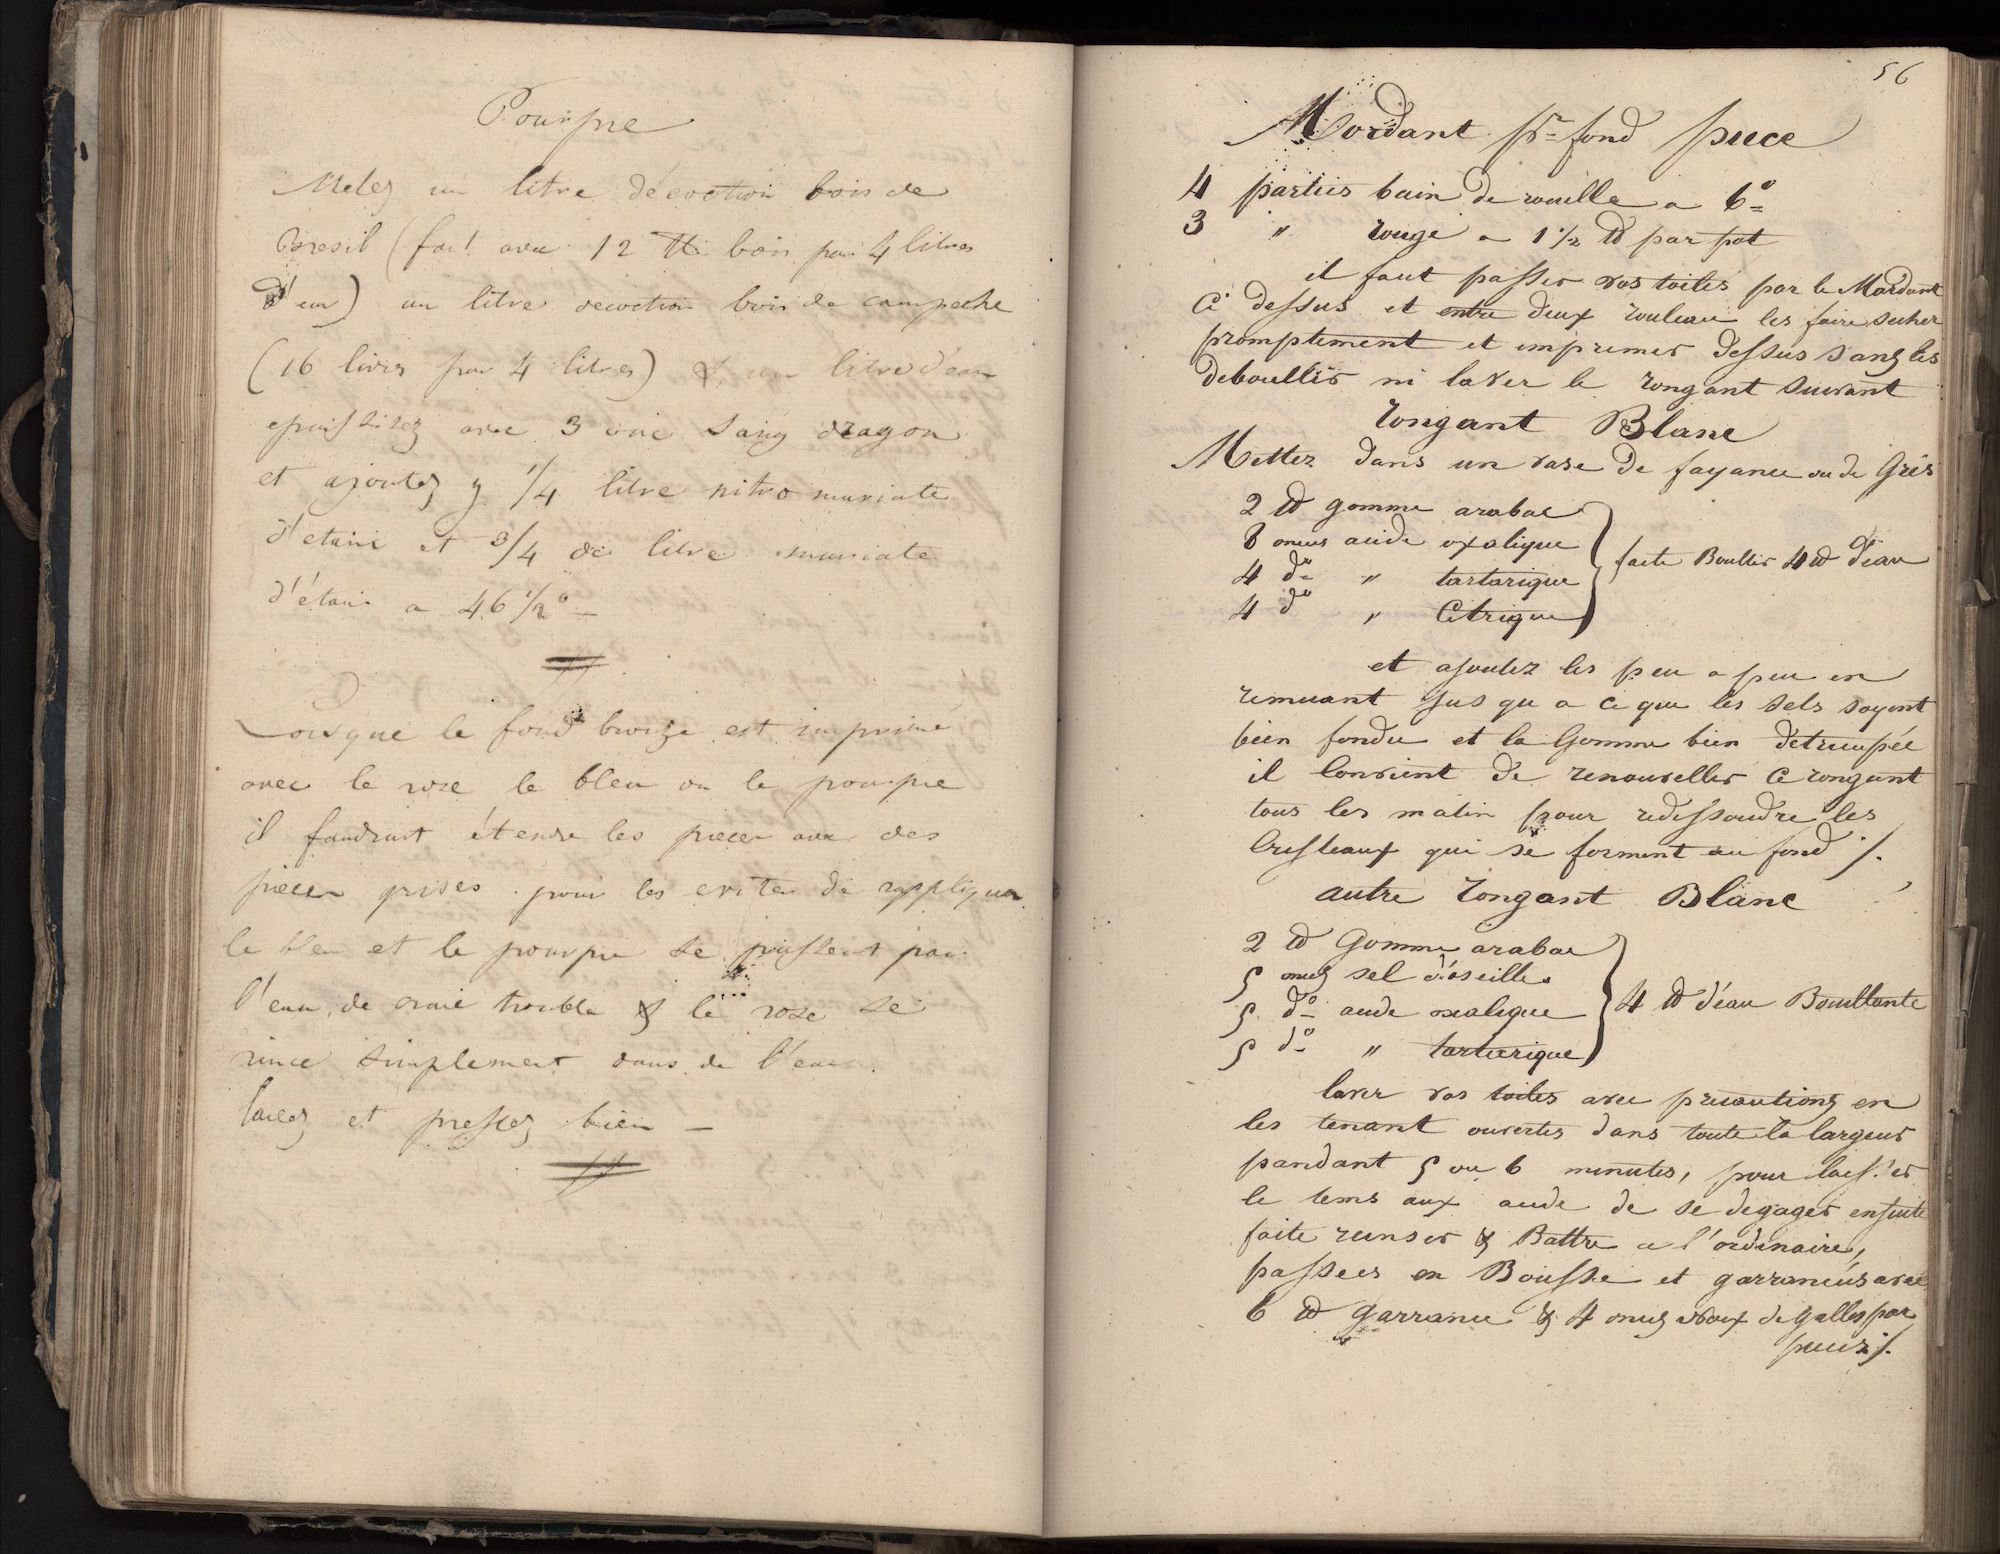 Pourpre
Melez un litre décoction bois de
Bresil (fait avec 12 ℔ bois pour 4 litres
d'eau) un litre decoction bois de campeche
(16 livres pour 4 litres) & un litre d'eau
epaississez avec 3 onc sang dragon
et ajoutez y 1/4 litre nitro muriate
d'etain et 3/4 de litre muriate
d'étain a 46 1/2° —
Lorsque le fond bronze est imprimé
avec le rose le bleu ou le pourpre
il faudrait étendre les pieces avec des
pieces grises pour les eviter de rappliquer
le bleu et le pourpre se passent par
l'eau de craie trouble & le rose se
rince simplement dans de l'eau
lavez et pressez bien —
56
Mordant pr fond puce
4 parties bain de rouille a 6°
3 " rouge a 1 1/2 ℔ par pot
il faut passer vos toiles par le Mordant
Ci dessus et entre deux rouleau les faire secher
promptement et imprimer dessus sans les
debouellir ni laver le rongant suivant
rongant Blanc
Mettez dans un vase de fayance ou de Grès
2 ℔ gomme arabac
6 onces acide oxalique
4 do " tartarique
4 do " Citrique
faite Boullir 4 ℔ d'eau
et ajoutez les peu a peu en
remuant jus qu a ce que les sels soyent
bien fondu et la Gomme bien détrempée
il Convient de renouveller ce rongant
tous les matin pour redissoudre les
Cristeaux qui se forment au fond /.
autre rongant Blanc
2 ℔ Gomme arabac
5 onces sel d'oseille
5 do acide oxalique
5 do " tartarique
4 ℔ d'eau Bouillante
laver vos toiles avec precautions en
les tenant ouvertes dans toute la largeur
pandant 5 ou 6 minutes, pour laisser
le tems aux acide de se degager ensuite
faite reinser & Battre a l'ordinaire,
passees en Bousse et garrancés avec
6 ℔ garrance & 4 onces noix de galles par
pieces /.